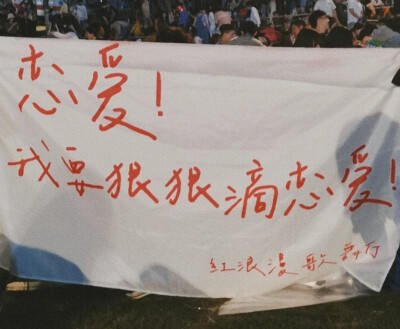 恋爱!
我要狠狠滴恋爱!
紅浪漫歌舞厅